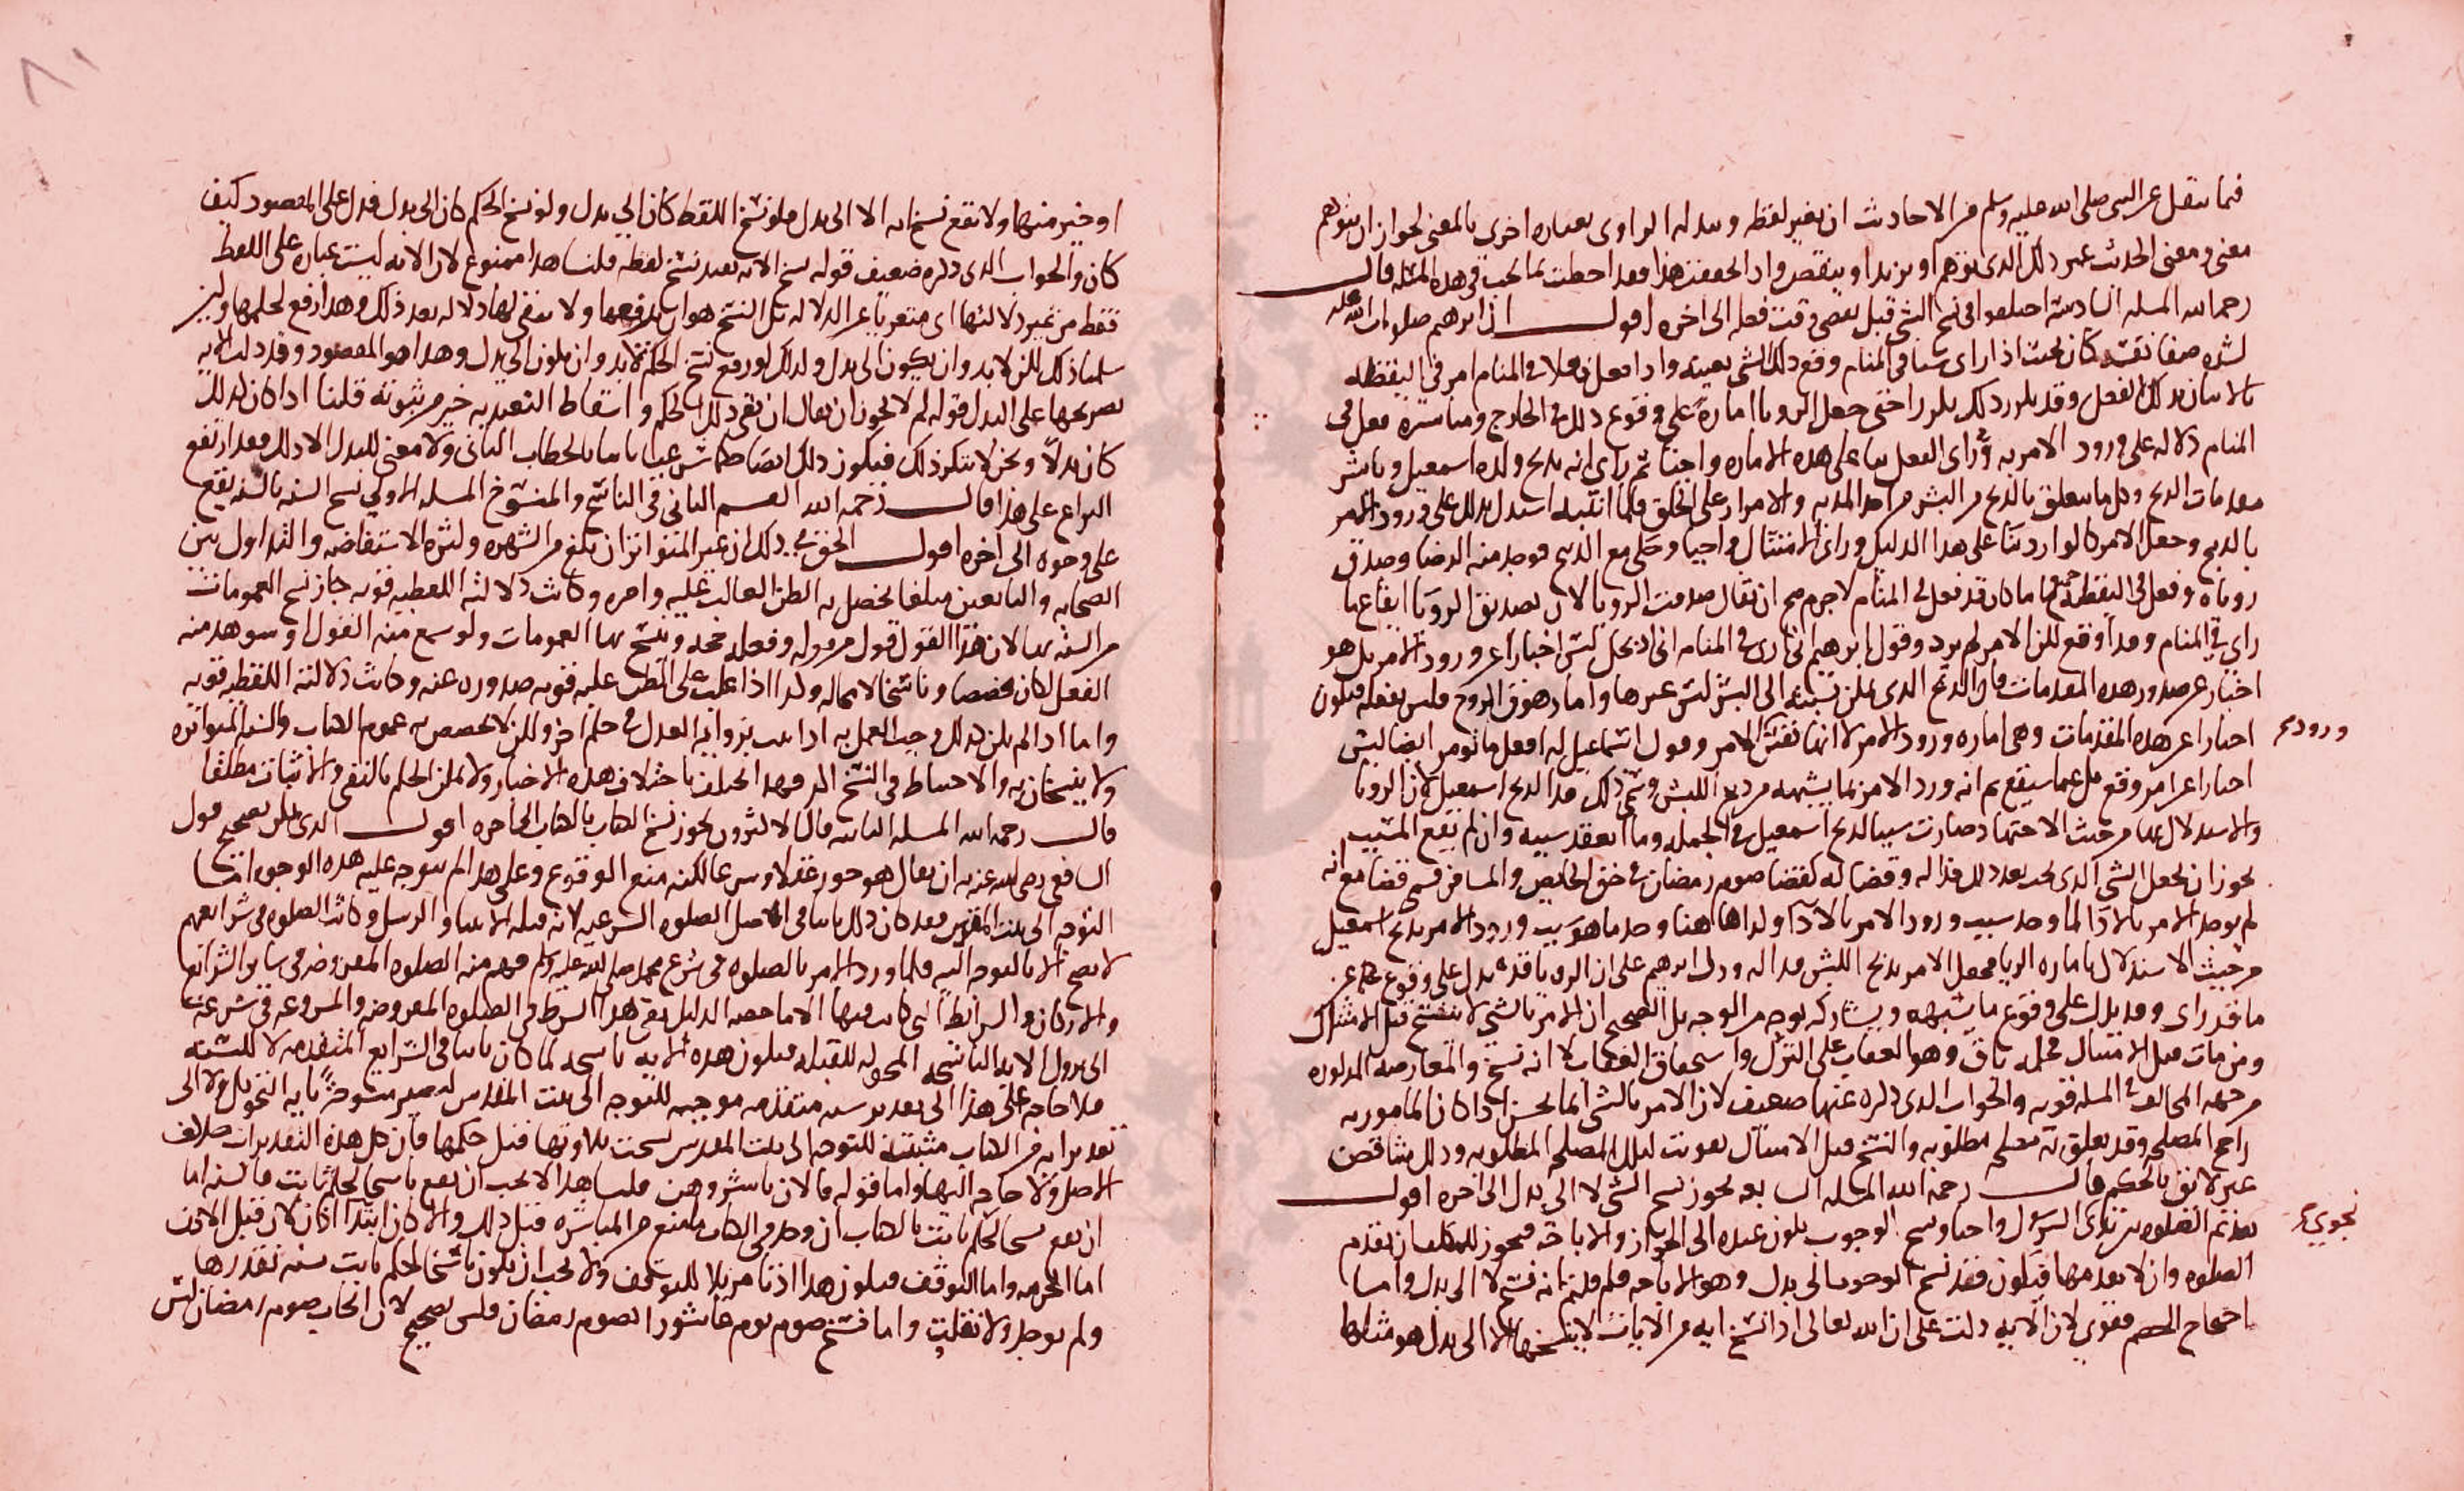 فيما ينقل عن النبي صلى الله عليه وسلم من الاحاديث ان يغير لفظه ويبدله الراوي بعباره اخرى بالمعنى لجواز ان يتوهم
معنى ومعنى الحديث غير ذلك الذي توهم او يزيد او ينقص واذ الحققت هذا فقد احطت بما يجب في هذه المسله قال
رحمه الله المسله السادسة اختلفوا في نسخ الشي قبل مضي وقت فعله الى اخره اقول ان ابرهيم صلوات الله عليه
لشده صفا نفسه كان بحيث اذا راى شيا في المنام وقع ذلك الشي بعينه واذا فعل فعلا في المنام امر في اليقظه
بالاتيان بذلك الفعل وقد يكرر ذلك مكررا حتى جعل الرويا امارة على وقوع ذلك في الخارج ومباشرة فعل في
المنام دلاله على ورود الامر به وراى الفعل بنا على هذه الاماره واجبا ثم راى انه يذبح ولده اسمعيل وباشر
مقدمات الذبح وكل ما يتعلق بالذبح من البشر من اخذ المديه والامرار على الحلق فلما انتبه استدل بذلك على ورود الامر
بالذبح وجعل الامر كالوارد بنا على هذا الدليل وراى الامتثال واجبا وحكى مع الذبيح فوجد منه الرضا وصدق
روياه وفعل في اليقظه جميع ما كان قد فعل في المنام لاجرم صح ان يقال صدقت الرويا لان تصديق الرويا ايقاع ما
راى في المنام وقد اوقع لكن الامر لم يرد وقول ابرهيم اني ارى في المنام اني اذبحك ليس اخبارا عن ورود الامر بل هو
اخبار عن صدور هذه المقدمات فان الذبح الذي يمكن نسبته الى البشر ليس غيرها واما زهوق الروح فليس بفعله فيكون
اخبارا عن هذه المقدمات وهي اماره ورود الامر لا انها نفس الامر وقول اسماعيل له افعل ما تومر ايضا ليس
ورود
اخبارا عن امر وقع بل عما سيقع ثم انه ورد الامر بما يشبهه من ذبح الكبش وسمي ذلك فدا لذبح اسمعيل لان الرويا
والاستدلال بها من حيث الاجتهاد صارت سببا لذبح اسمعيل في الجمله وما انعقد سببه وان لم يقع المسبب
يجوز ان يجعل الشي الذي يجب بعد ذلك فدا له وقضا له كقضا صوم رمضان في حق الحايض والمسافر قسمي قضا مع انه
لم يوجد الامر بالادا لما وجد سبب ورود الامر بالادا وكذا هاهنا وجد ما هو سبب ورود الامر بذبح اسمعيل
من حيث الاستدلال باماره الرويا فجعل الامر بذبح الكبش فدا له ودل ابرهيم على ان الرويا قد تدل على وقوع عين
ما قد راى وقد يدل على وقوع ما يشبهه ويشاركه بوجه من الوجوه بل الصحيح ان الامر بالشي لا ينسخ قبل الامتثال
ومن مات قبل الامتثال فحكمه باق وهو العقاب على الترك واستحقاق العقاب لا انه نسخ والمعارضه المذكوره
من جهة المخالف في المسله قويه والجواب الذي ذكره عنها ضعيف لان الامر بالشي انما يحسن اذا كان المامور به
راجح المصلحه وقد تعلق به مصلحه مطلوبه والنسخ قبل الامتثال تفويت لتلك المصلحه المطلوبه وذلك تناقض
غير لايق بالحكيم قال رحمه الله المسله السابعه يجوز نسخ الشي لا الى بدل الى اخره اقول
تقديم الصلوه بين يدي الرسول واجبا ونسخ الوجوب يكون عنده الى الجواز والاباحه فيجوز للمكلف ان يقدم
نجوى
الصلوه وان لا يقدمها فيكون فقد نسخ الوجوب الى بدل وهو الاباحه فلم قلتم انه نسخ لا الى بدل واما
احتجاج الخصم فقوي لان الايه دلت على ان الله تعالى اذا نسخ ايه من الايات لا ينسخها الا الى بدل هو مثلها
او خير منها ولا يقع نسخ ايه الا الى بدل فلو نسخ اللفظ كان الى بدل ولو نسخ الحكم كان الى بدل فدل على المقصود كيف
كان والجواب الذي ذكره ضعيف قوله نسخ الايه يفيد نسخ لفظه قلنا هذا ممنوع لان الايه ليست عباره على اللفظ
فقط من غير دلالتها اي متعريا عن الدلاله بل النسخ هو ان يرفعها ولا يبقى لها دلاله بعد ذلك وهذا رفع لحكمها ولين
سلمنا ذلك لكن لابد وان يكون الى بدل وكذلك لو رفع نسخ الحكم لابد وان يكون الى بدل وهذا هو المقصود وقد دلت الايه
بصريحها على البدل قوله لم لا يجوز ان يقال ان نفي ذلك الحكم واسقاط التعبد به خير من ثبوته قلنا اذا كان كذلك
كان بدلا ونحن لا ننكر ذلك فيكون ذلك ايضا حكما شرعيا ثابتا بالخطاب الثاني ولا معنى للبدل الا ذلك فقد ارتفع
النزاع على هذا قال رحمه الله القسم الثاني في الناسخ والمنسوخ المسله الاولي نسخ السنه بالسنه يقع
على وجوه الى اخره اقول الحق في ذلك ان غير المتواتر ان بلغ من الشهره وكثره الاستفاضه والتداول بين
الصحابه والتابعين مبلغا يحصل به الظن الغالب عليه وامره وكانت دلالته اللفظيه قويه جاز نسخ العمومات
من السنه بها لان هذا القول قول من قوله وفعله حجه وينسخ بها العمومات ولو سمع منه القول او شوهد منه
الفعل لكان مخصصا وناسخا لا محاله وكذا اذا غلب على الظن عليه قويه صدوره عنه وكانت دلالته اللفظيه قويه
واما اذا لم يكن كذلك وجب العمل به اذا ثبت بروايه العدل في حكم اخر ولكن لا يخصص به عموم الكتاب والسنه المتواتره
ولا ينسخان به والاحتياط في النسخ الحكم يختلف باختلاف هذه الاخبار ولا يمكن الحكم بالنفي والاثبات مطلقا
قال رحمه الله المسله الثانيه قال الاكثرون يجوز نسخ الكتاب بالكتاب الى اخره اقول الذي يمكن تصحيح قول
الشافعي رضي الله عنه به ان يقال هو جوز عقلا وشرعا لكنه منع الوقوع وعلى هذا لم يتوجه عليه هذه الوجوه اما
التوجه الى بيت المقدس فقد كان ذلك ثابتا في اصل الصلوه الشرعيه لانه قبله الانبيا والرسل وكانت الصلوه في شرايعهم
لا يصح الا بالتوجه اليه فلما ورد الامر بالصلوه في شرع محمد صلى الله عليه وسلم فهم منه الصلوه المعروضه في ساير الشرايع
والاركان والشرايط التي كانت فيها الا ما خصه الدليل بقي هذا الشرط في الصلوه المفروضه والمشروعه في شرعنا
الى نزول الايه الناسخه المحوله للقبله فيكون هذه الايه ناسخه لما كان ثابتا في الشرايع المتقدمه لا للسنه
فلا حاجه على هذا الى تقدير سنه متقدمه موجبه للتوجه الى بيت المقدس ليصير منسوخا بايه التحويل ولا الى
تقدير ايه من الكتاب مثبته للتوجه الى بيت المقدس نسخت تلاوتها قبل حكمها فان كل هذه التقديرات خلاف
الاصل ولا حاجه اليها واما قوله فالان باشروهن قلنا هذا لا يجب ان يقع ناسخا لحكم ثابت بالسنه اما
ان يقع نسخا لحكم ثابت بالكتاب ان وجد في الكتاب ما يمنع من المباشره قبل ذلك والا كان ابتدا اذ كان قبل الاذن
اما الحرمه واما التوقف فيكون هذا اذنا مزيلا للتوقف ولا يجب ان يكون ناسخا لحكم ثابت بسنه نقدرها
ولم يوجد ولا نقلت واما نسخ صوم يوم عاشورا بصوم رمضان فليس بصحيح لان ايجاب صوم رمضان ليس